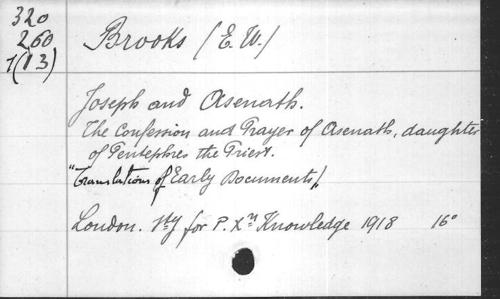 320
260
7(13)
Brooks (E. W.)
Joseph and Asenath.
The Confession and Prayer of Asenath, daughter
of Pentephres the Priest.
"Translations of Early Documents".
London. Sty for P. Xn Knowledge 1918 16°